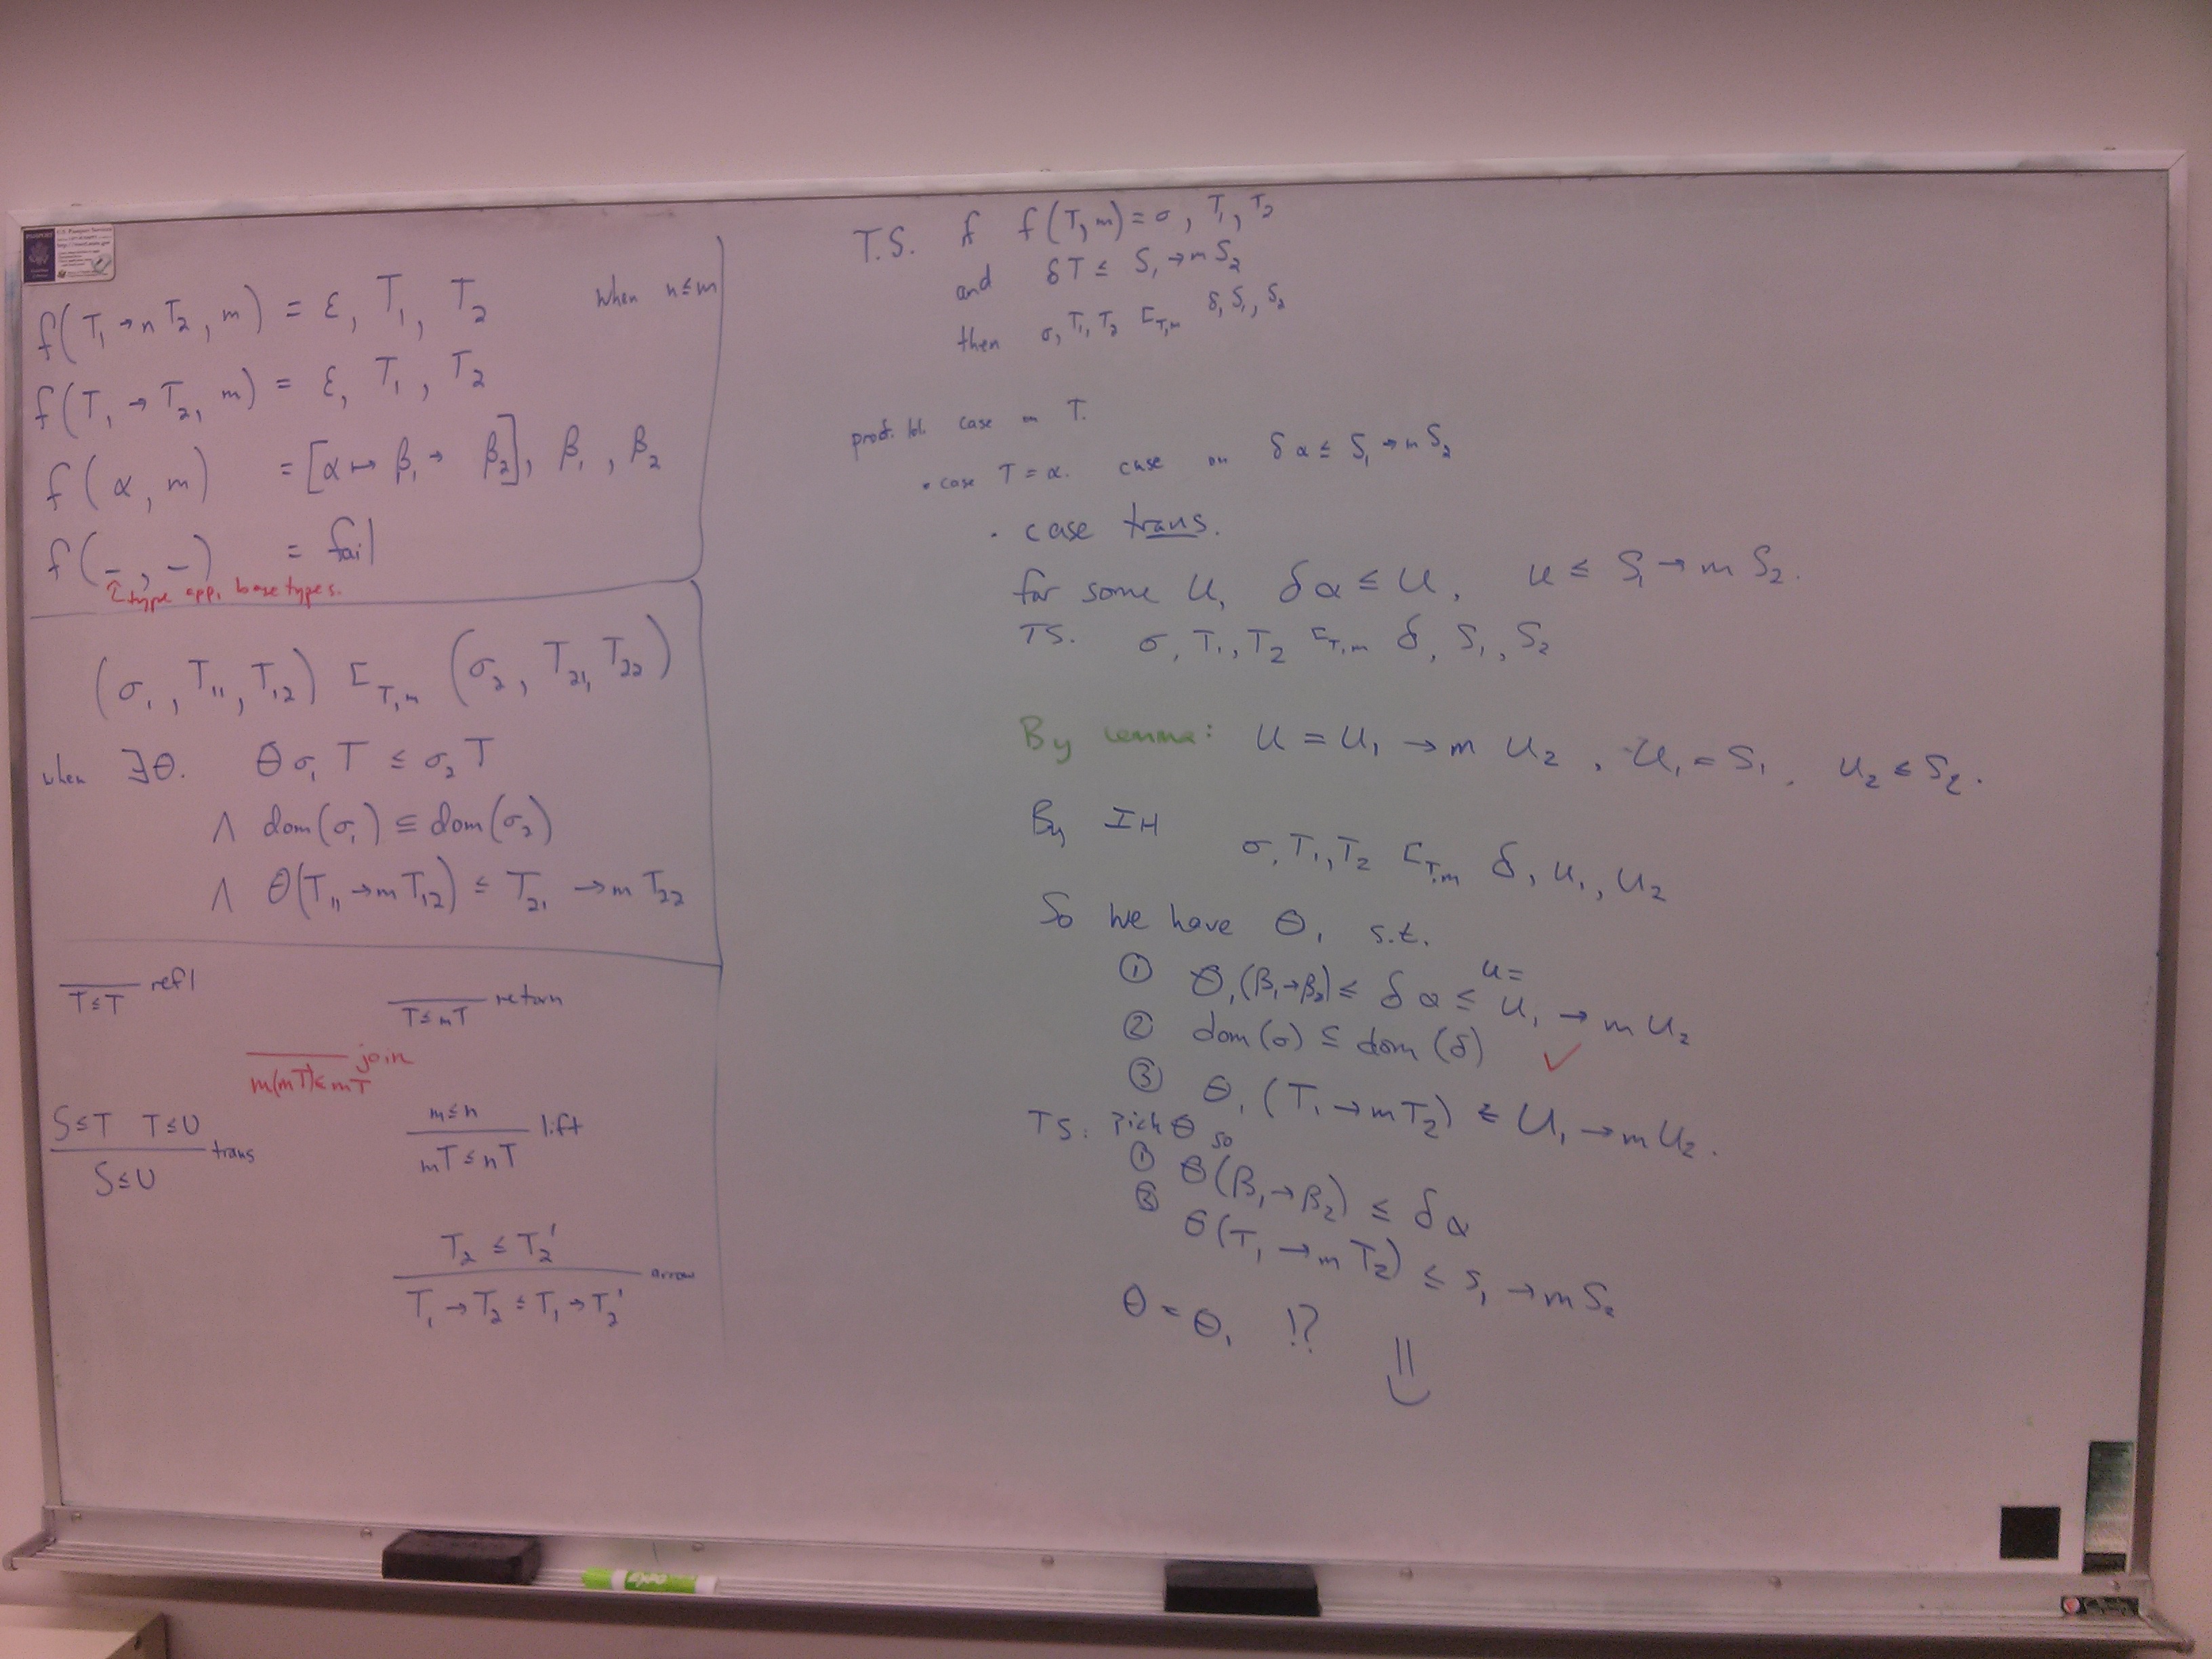 f(T₁ →n T₂, m) = ε, T₁, T₂ when n≤m
f(T₁ → T₂, m) = ε, T₁, T₂
f(α, m) = [α ↦ β₁ → β₂], β₁, β₂
f(_, _) = fail
type app, base types.
(σ₁, T₁₁, T₁₂) ⊑T,m (σ₂, T₂₁, T₂₂)
when ∃θ. θσ₁T ≤ σ₂T
∧ dom(σ₁) ⊆ dom(σ₂)
∧ θ(T₁₁ →m T₁₂) ≤ T₂₁ →m T₂₂
T≤T refl
T≤mT return
m(mT)≤mT join
S≤T T≤U
S≤U trans
m≤n
mT≤nT lift
T₂ ≤ T₂'
T₁→T₂ ≤ T₁→T₂' arrow
T.S. if f(T,m) = σ, T₁, T₂
and δT ≤ S₁ →m S₂
then σ, T₁, T₂ ⊑T,m δ, S₁, S₂
proof. case on T.
• case T = α. case on δα ≤ S₁ →m S₂
· case trans.
for some U, δα ≤ U, U ≤ S₁ →m S₂.
TS. σ, T₁, T₂ ⊑T,m δ, S₁, S₂
By lemma: U = U₁ →m U₂, U₁ = S₁, U₂ ≤ S₂.
By IH σ, T₁, T₂ ⊑T,m δ, U₁, U₂
So we have θ₁ s.t.
① θ₁(β₁→β₂) ≤ δα ≤ U= U₁ →m U₂
② dom(σ) ⊆ dom(δ) ✓
③ θ₁(T₁ →m T₂) ≤ U₁ →m U₂.
TS: pick θ so
① θ(β₁→β₂) ≤ δα
③ θ(T₁ →m T₂) ≤ S₁ →m S₂
θ = θ₁ !?